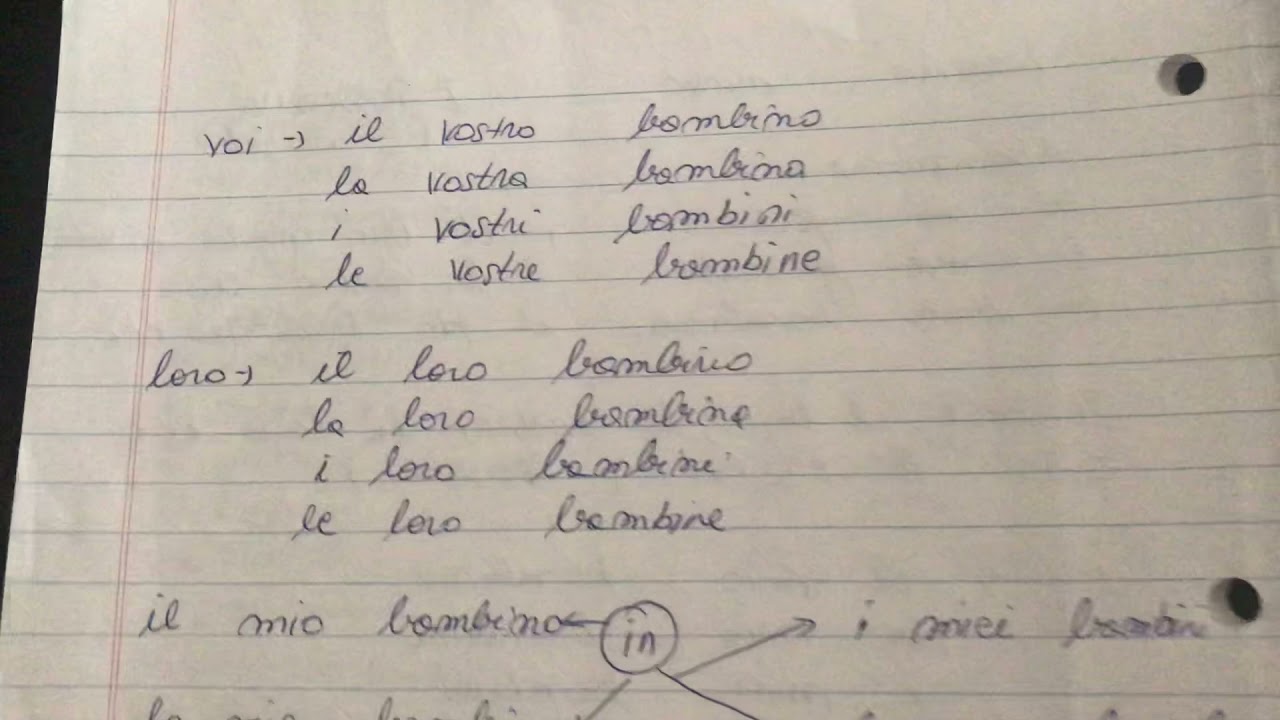 voi → il vostro bambino
la vostra bambina
i vostri bambini
le vostre bambine
loro → il loro bambino
la loro bambina
i loro bambini
le loro bambine
il mio bambino ← in → i miei bambini